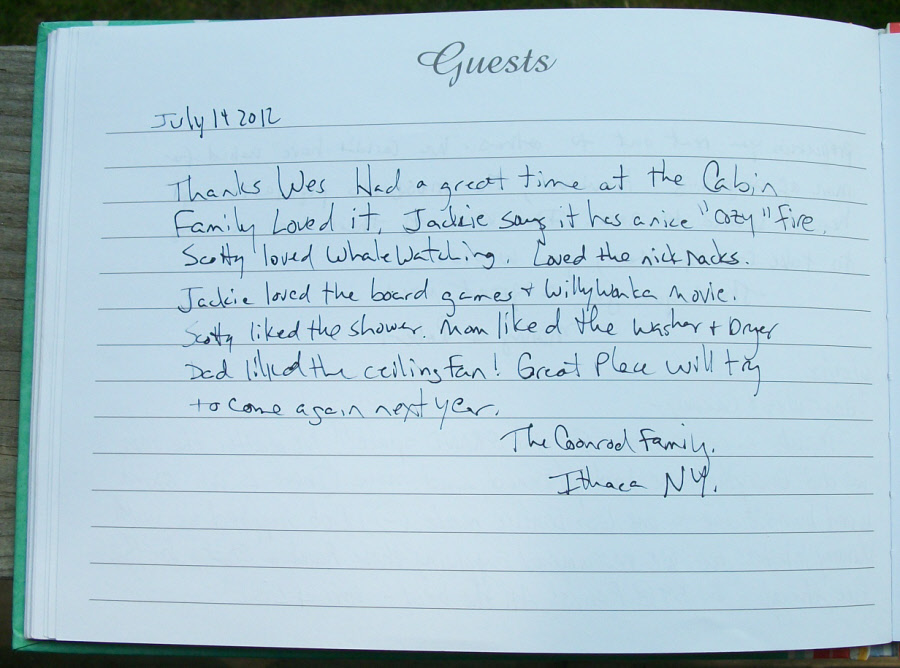 Guests
July 14 2012
Thanks Wes Had a great time at the Cabin
Family Loved it. Jackie says it has a nice "cozy" fire.
Scotty loved Whale Watching. Loved the nick nacks.
Jackie loved the board games + Willy Wonka movie.
Scotty liked the shower. Mom liked the Washer + Dryer
Dad liked the ceiling fan! Great Place will try
to come again next year.
The Coonrod Family.
Ithaca NY.